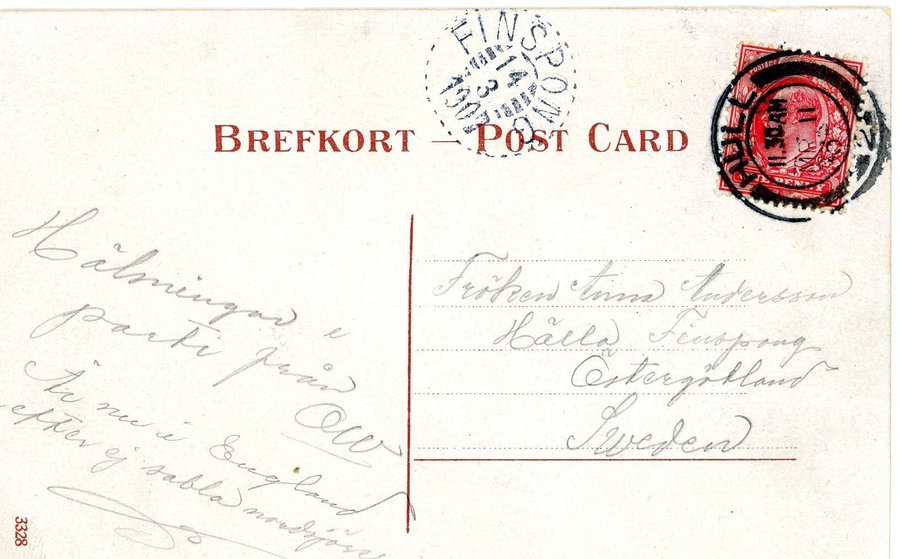 FINSPONG
14
3
190
BREFKORT — POST CARD
HULL
11.30 AM
MR 11
PENNY
Hälsningar i
parti från
OW
Är nu i England
efter ej
Fröken Anna Andersson
Hälla Finspong
Östergötland
Sweden
3328